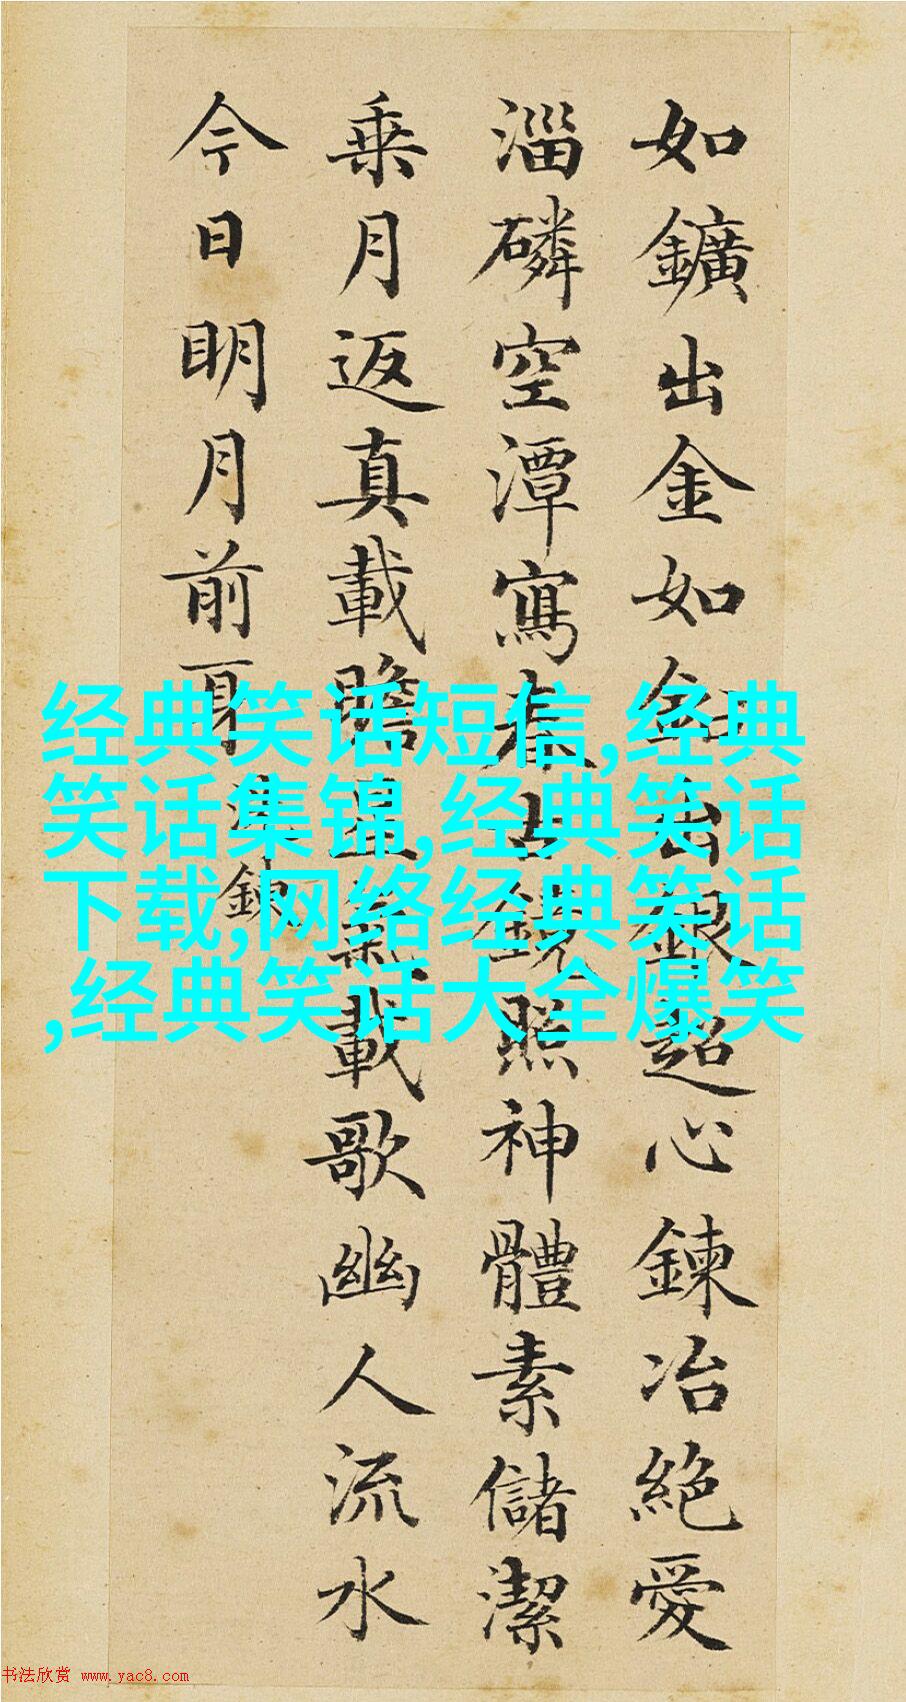 如鑛出金如鉛出銀超心鍊冶絕愛
淄磷空潭寫春古鏡照神體素儲潔
乗月返真載瞻星氣載歌幽人流水
今日明月前身
洗鍊
经典笑话短信,经典
笑话集锦,经典笑话
下载,网络经典笑话
,经典笑话大全爆笑
书法欣赏 www.yac8.com